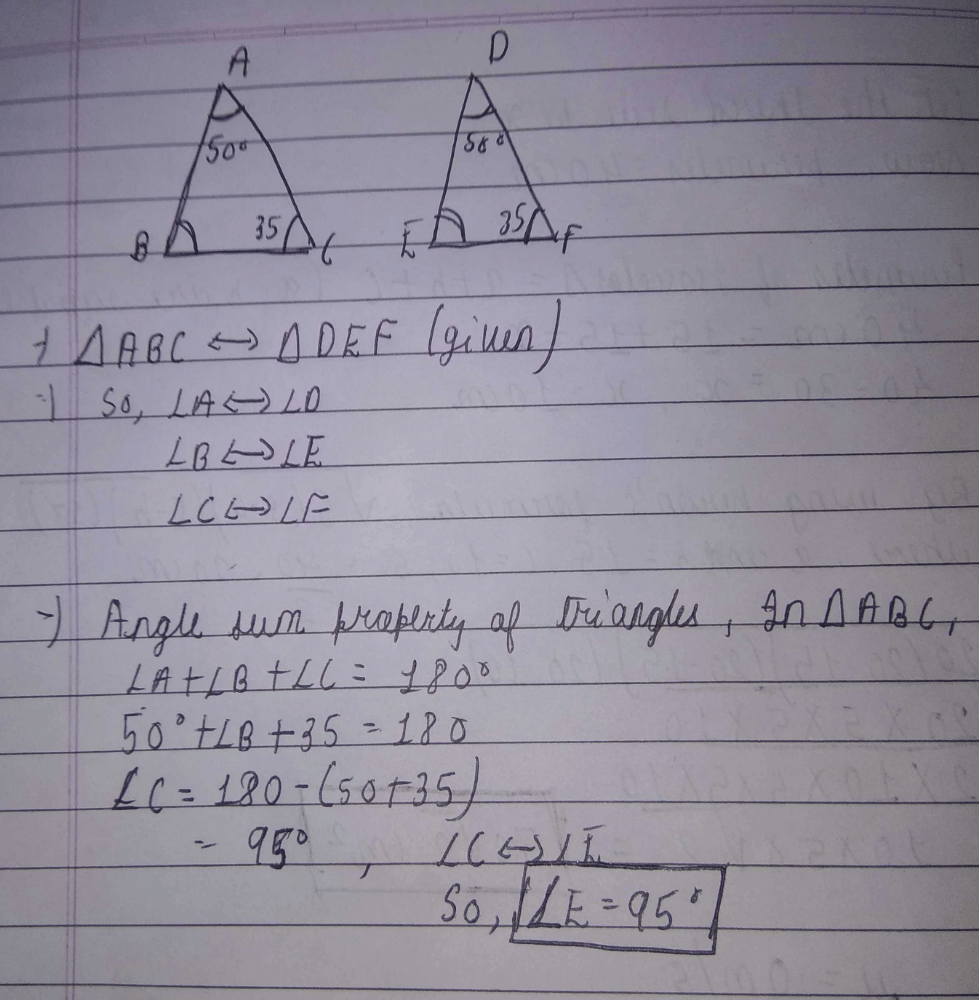 A D
50° 50°
B 35 C E 35 F
→ ΔABC ↔ ΔDEF (given)
→ So, ∠A ↔ ∠D
∠B ↔ ∠E
∠C ↔ ∠F
→ Angle sum property of triangles, In ΔABC,
∠A+∠B+∠C = 180°
50°+∠B+35 = 180
∠C = 180-(50+35)
= 95° , ∠C ↔ ∠E
So, ∠E = 95°